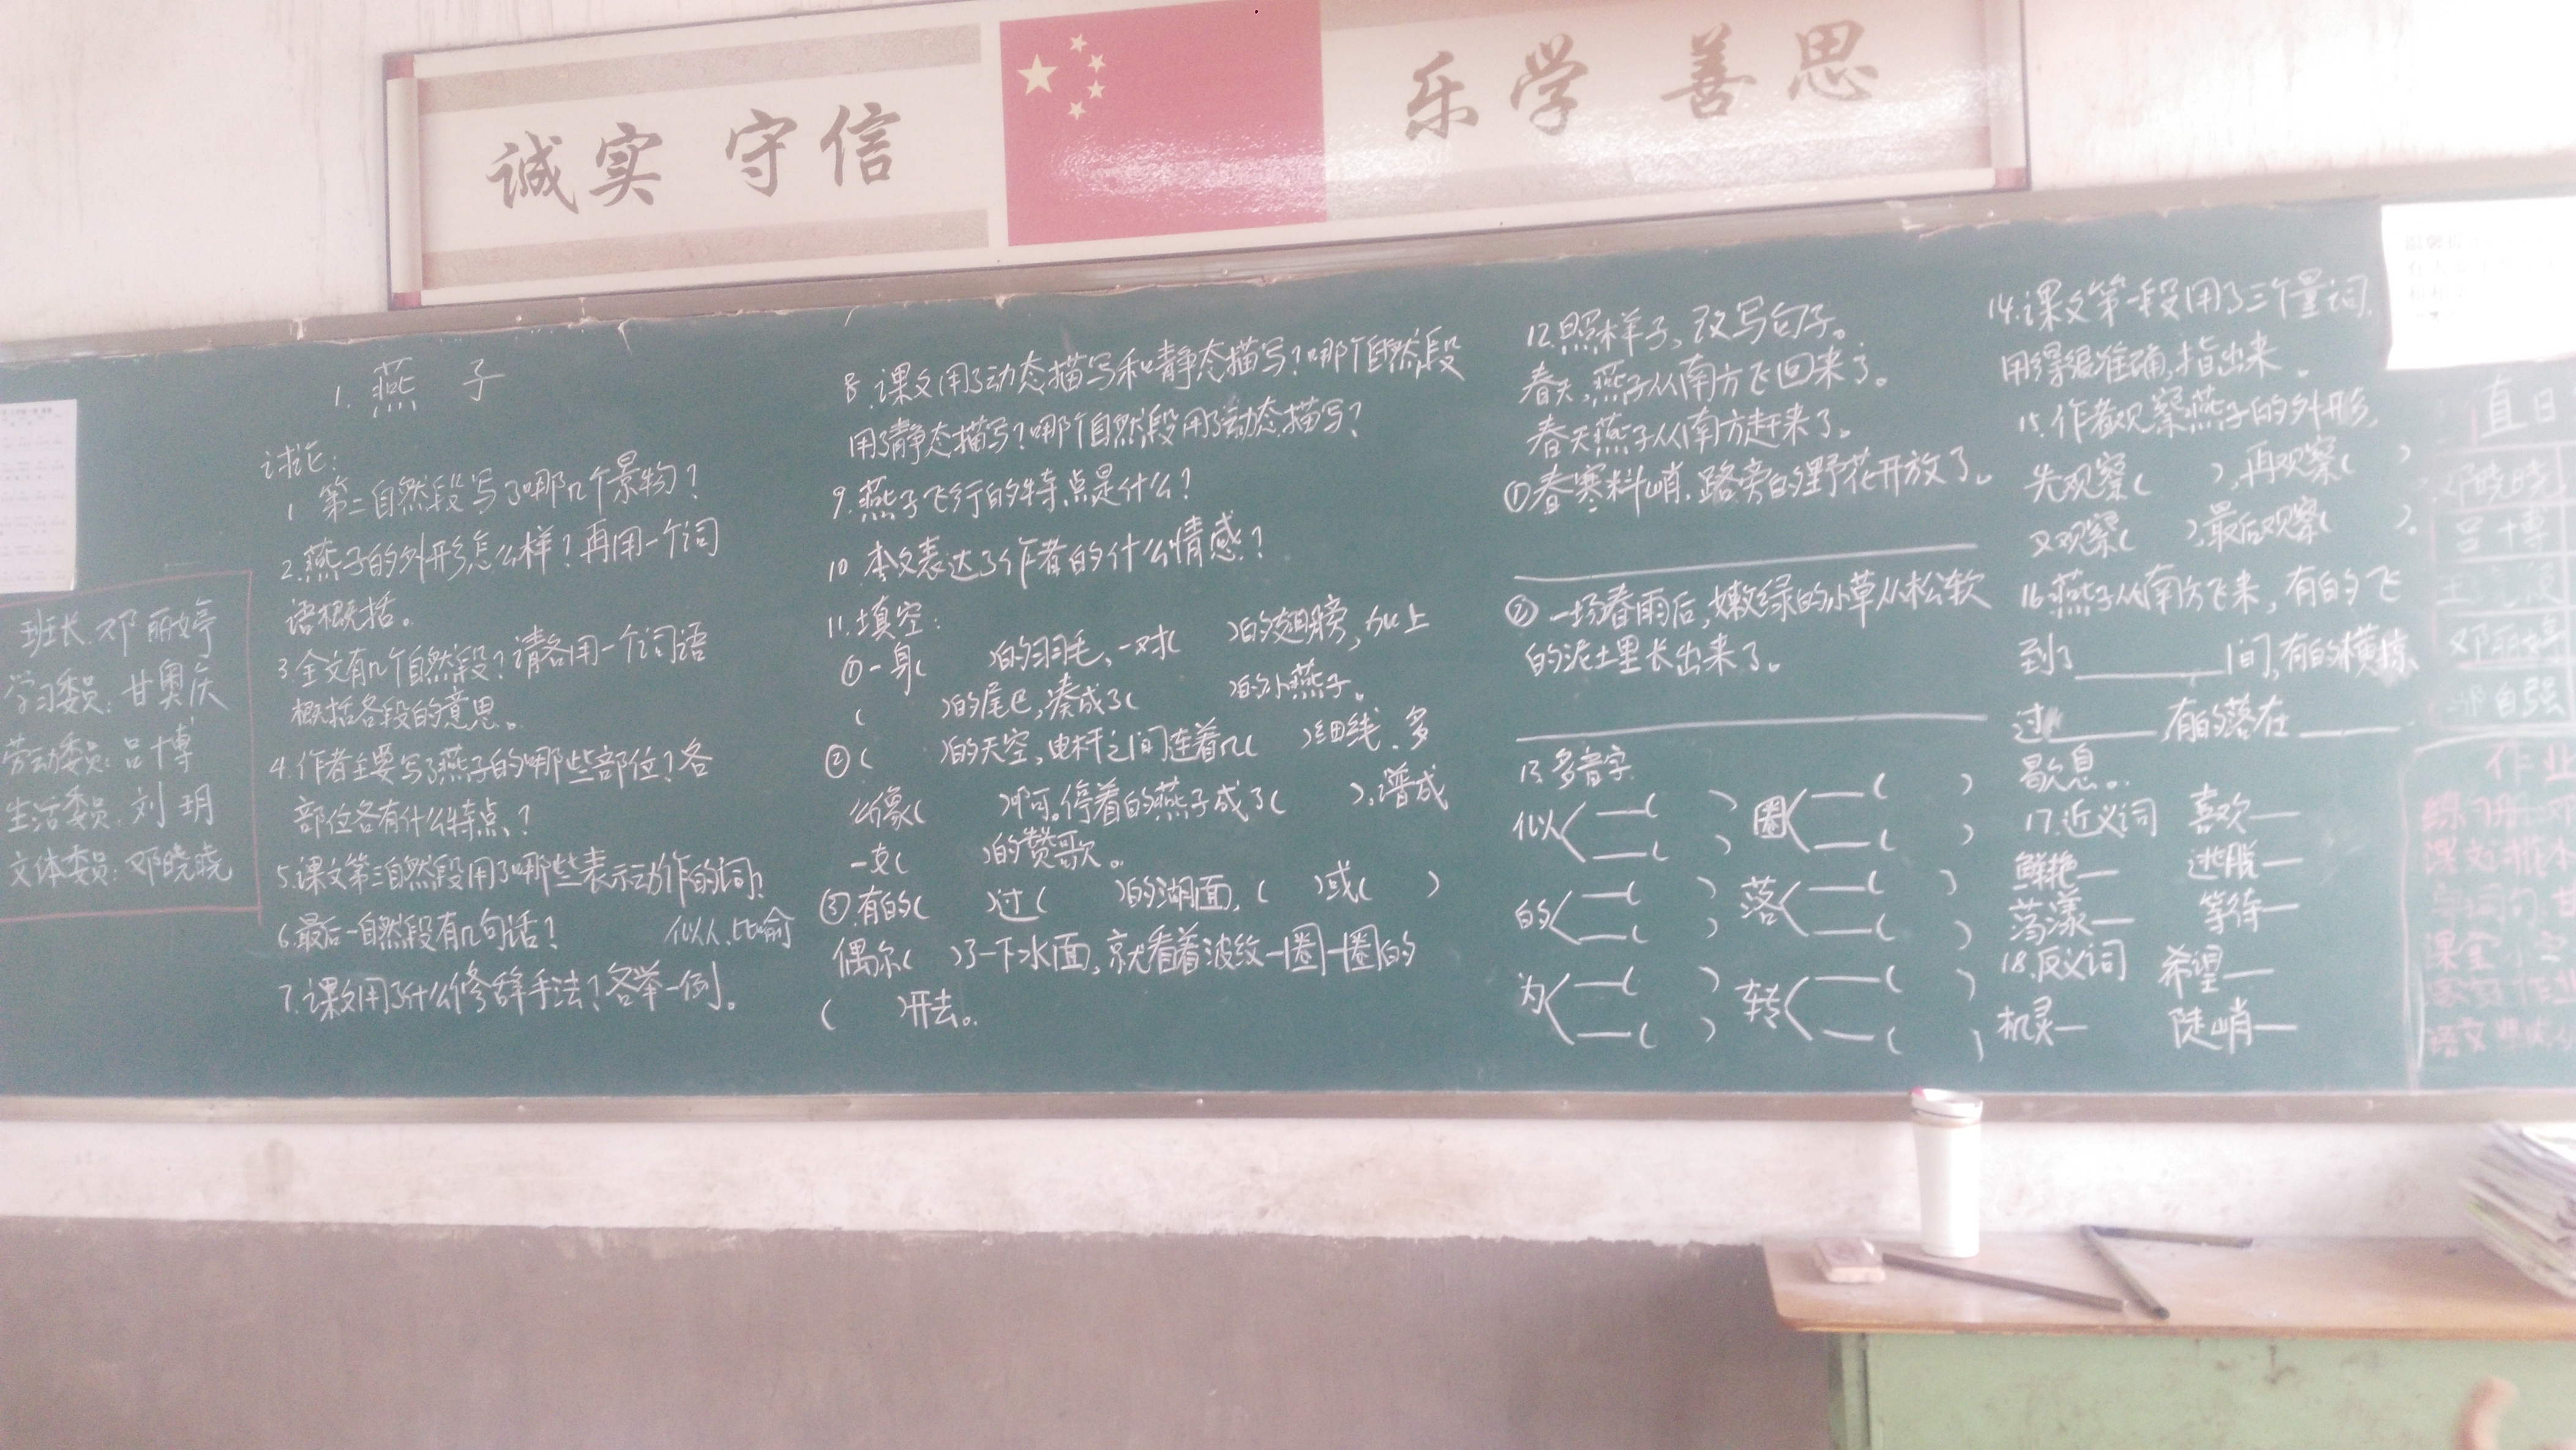 诚实 守信
乐学 善思
1. 燕 子
讨论:
1 第二自然段写了哪几个景物?
2.燕子的外形怎么样?再用一个词
语概括。
3.全文有几个自然段?请各用一个词语
概括各段的意思。
4.作者主要写了燕子的哪些部位?各
部位各有什么特点?
5.课文第三自然段用了哪些表示动作的词?
6.最后一自然段有几句话?
似人、比喻
7.课文用了什么修辞手法?各举一例。
8.课文用了动态描写和静态描写?哪个自然段
用了静态描写?哪个自然段用了动态描写?
9.燕子飞行的特点是什么?
10 本文表达了作者的什么情感?
11.填空:
①一身( )的羽毛,一对( )的翅膀,加上
( )的尾巴,凑成了( )的小燕子。
②( )的天空,电杆之间连着几( )细线,多
么像( )啊。停着的燕子成了( ),谱成
一支( )的赞歌。
③.有的( )过( )的湖面,( )或( )
偶尔( )了一下水面,就看着波纹一圈一圈的
( )开去。
12.照样子,改写句子。
春天,燕子从南方飞回来了。
春天燕子从南方赶来了。
①春寒料峭,路旁的野花开放了。
②一场春雨后,嫩绿的小草从松软
的泥土里长出来了。
13.多音字
似 —( ) —( ) 圈 —( ) —( )
的 —( ) —( ) 落 —( ) —( )
为 —( ) —( ) 转 —( ) —( )
14.课文第一段用了三个量词,
用得很准确,指出来。
15.作者观察燕子的外形,
先观察( ),再观察( )
又观察( ),最后观察( )。
16.燕子从南方飞来,有的飞
到了______间,有的横掠
过______有的落在______
歇息。
17.近义词 喜欢—
鲜艳— 逃脱—
荡漾— 等待—
18.反义词 希望—
机灵— 陡峭—
班长:邓丽婷
学习委员:甘奥庆
劳动委员:吕博
生活委员:刘玥
文体委员:邓晓晓
值日
邓晓晓
吕博
邓丽婷
邓自强
作业